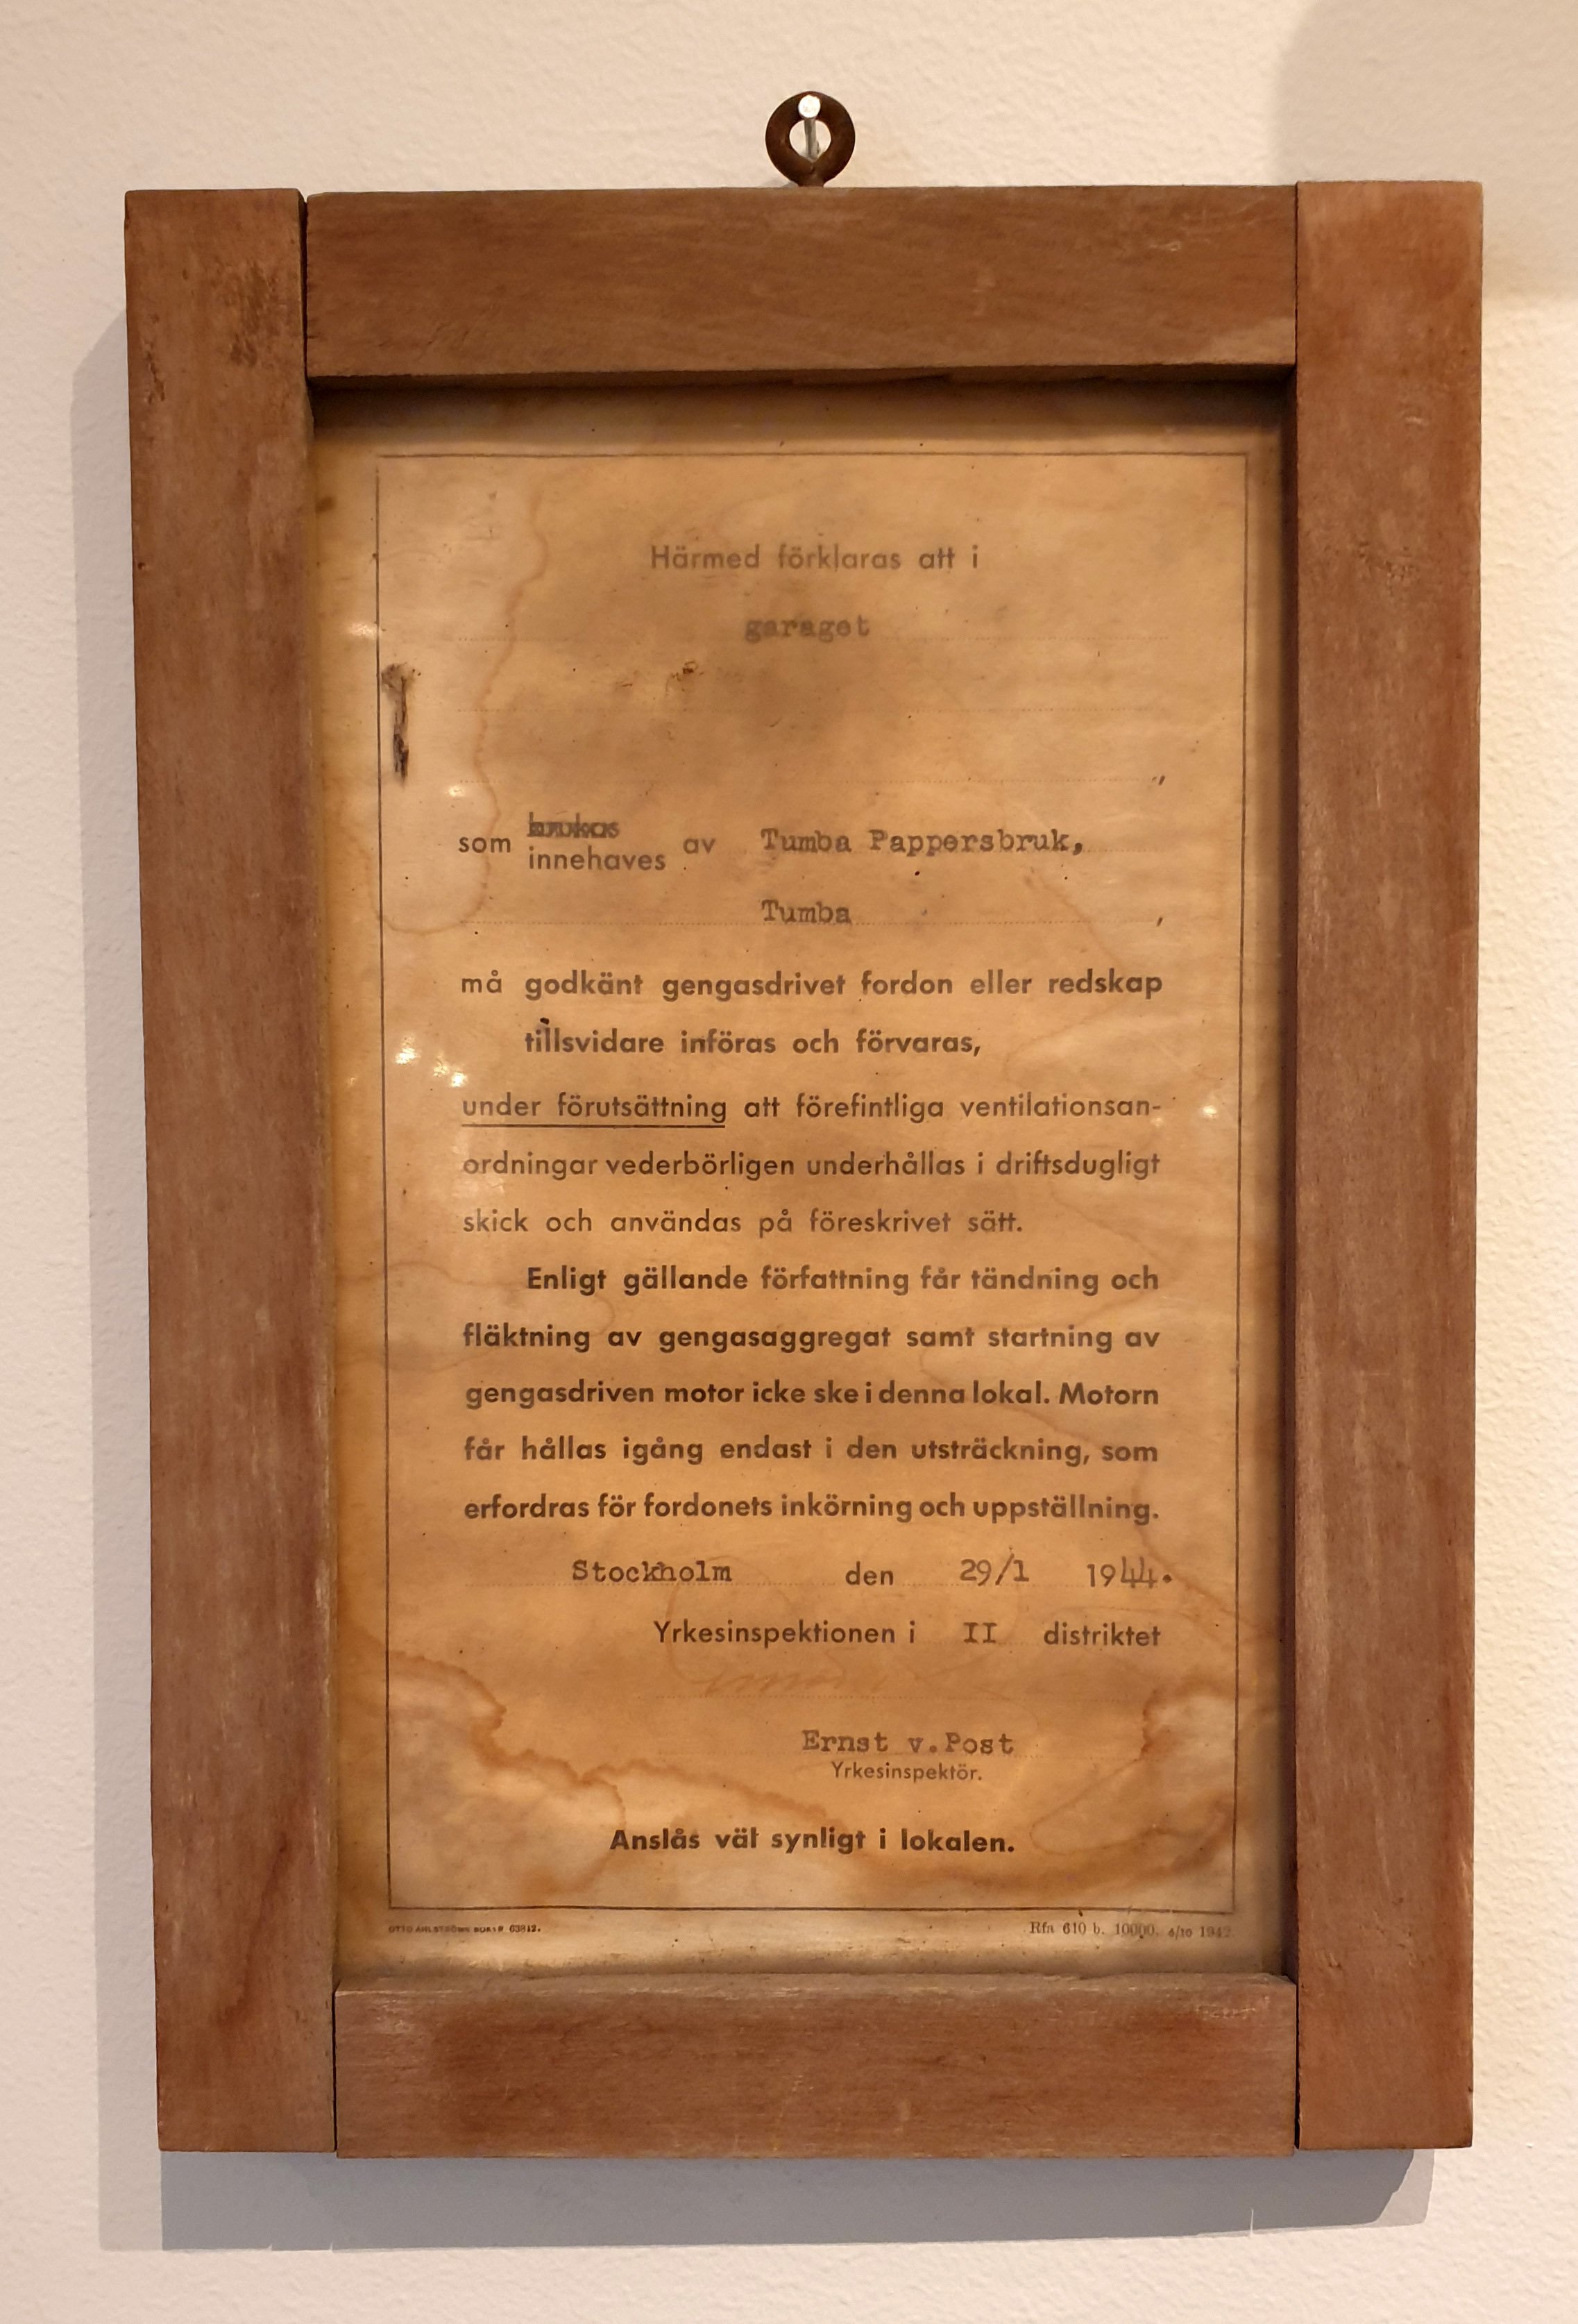 Härmed förklaras att i
garaget
,
som brukas av Tumba Pappersbruk,
innehaves
Tumba ,
må godkänt gengasdrivet fordon eller redskap
tillsvidare införas och förvaras,
under förutsättning att förefintliga ventilationsan-
ordningar vederbörligen underhållas i driftsdugligt
skick och användas på föreskrivet sätt.
Enligt gällande författning får tändning och
fläktning av gengasaggregat samt startning av
gengasdriven motor icke ske i denna lokal. Motorn
får hållas igång endast i den utsträckning, som
erfordras för fordonets inkörning och uppställning.
Stockholm den 29/1 1944.
Yrkesinspektionen i II distriktet
Ernst v. Post
Yrkesinspektör.
Anslås väl synligt i lokalen.
OTTO AHLSTRÖMS 63812. Rfn 610 b. 10000. 1942